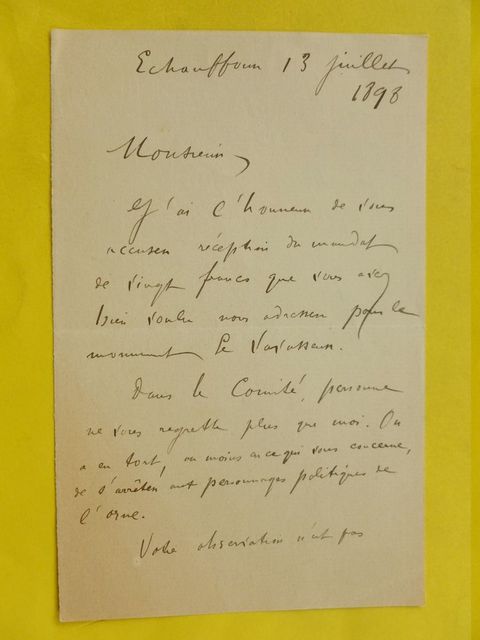 Echauffour 13 juillet
1898
Monsieur
J'ai l'honneur de vous
accuser réception du mandat
de vingt francs que vous avez
bien voulu nous adresser pour le
monument Le Vavasseur.
Dans le Comité, personne
ne vous regrette plus que moi. On
a eu tort, au moins en ce qui vous concerne,
de s'arrêter aux personnages politiques de
l'Orne.
Votre observation n'est pas